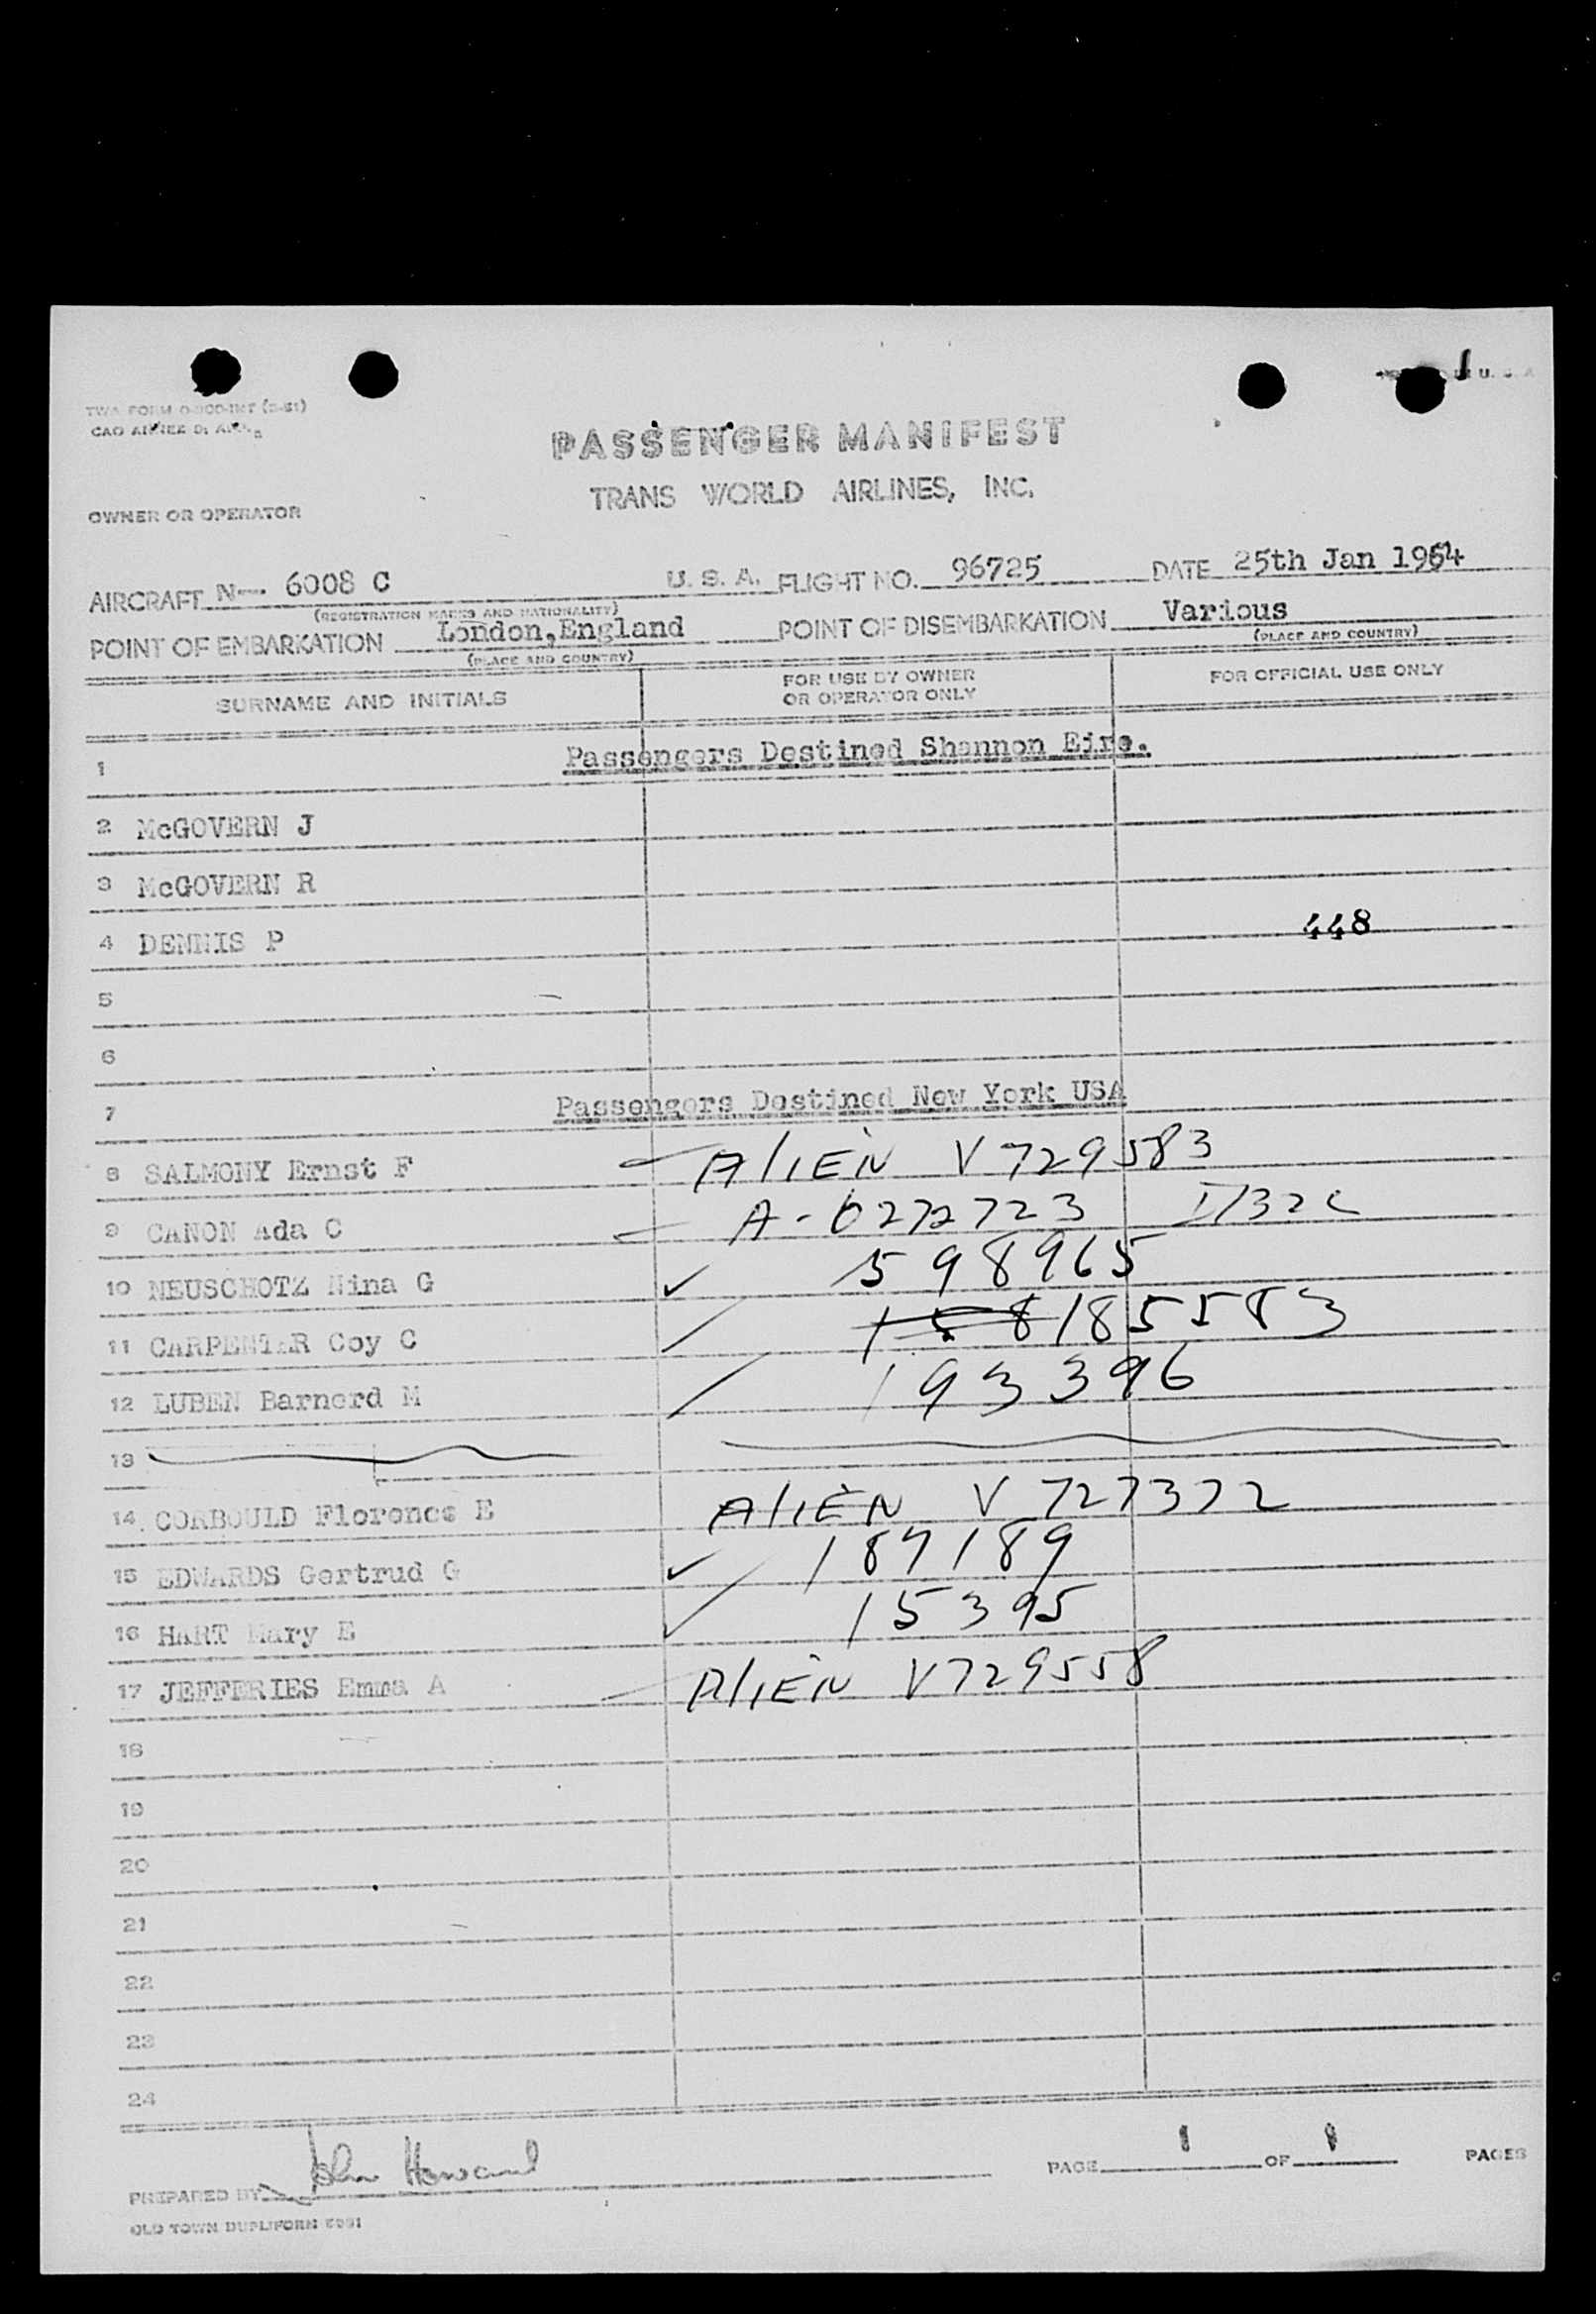 U. S. A
TWA FORM
CAO ANNEX
PASSENGER MANIFEST
TRANS WORLD AIRLINES, INC.
OWNER OR OPERATOR
AIRCRAFT N-- 6008 C U. S. A. FLIGHT NO. 96725 DATE 25th Jan 1954
(REGISTRATION MARKS AND NATIONALITY)
POINT OF EMBARKATION London, England POINT OF DISEMBARKATION Various
(PLACE AND COUNTRY) (PLACE AND COUNTRY)
SURNAME AND INITIALS FOR USE BY OWNER OR OPERATOR ONLY FOR OFFICIAL USE ONLY
1 Passengers Destined Shannon Eire.
2 McGOVERN J
3 McGOVERN R
4 DENNIS P 448
5
6
7 Passengers Destined New York USA
8 SALMONY Ernst F ALIEN V729583
9 CANON Ada C A-0272723 I/32C
10 NEUSCHOTZ Nina G 598965
11 CARPENTER Coy C 185583
12 LUBEN Barnerd M 193396
13
14 CORBOULD Florence E ALIEN V 727372
15 EDWARDS Gertrud G 187189
16 HART Mary E 15395
17 JEFFERIES Emma A ALIEN V729558
18
19
20
21
22
23
24
PREPARED BY John Howard PAGE 1 OF PAGES
OLD TOWN DUPLIFORM